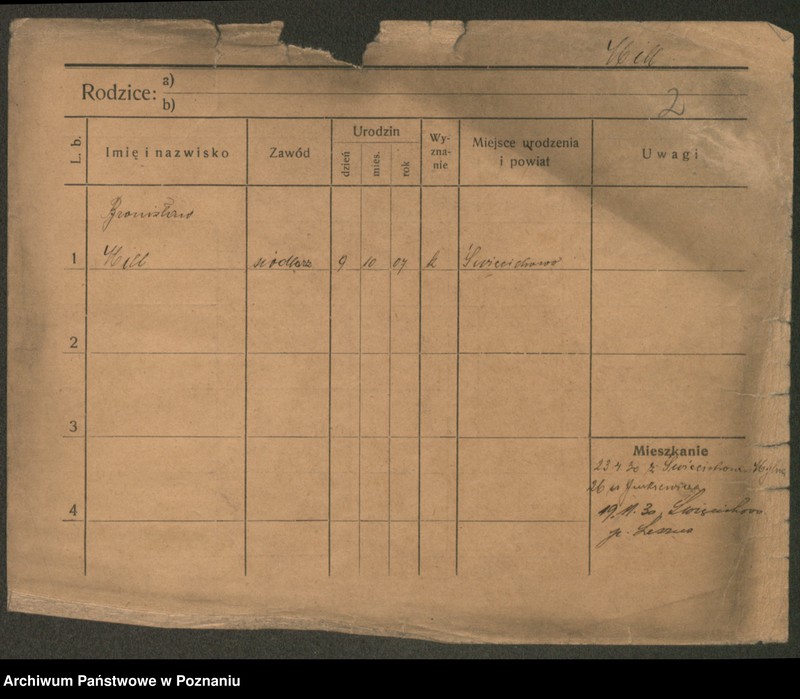 Hill
Rodzice: a)
b)
2
L. b.
Imię i nazwisko
Zawód
Urodzin
dzień
mies.
rok
Wy-
zna-
nie
Miejsce urodzenia
i powiat
Uwagi
Bronisław
1 Hill siodlarz 9 10 07 k Święciechowo
2
3
Mieszkanie
23.4.30 z Święciechowa
26 u
4
19.11.30 Święciechowo
p. Leszno
Archiwum Państwowe w Poznaniu